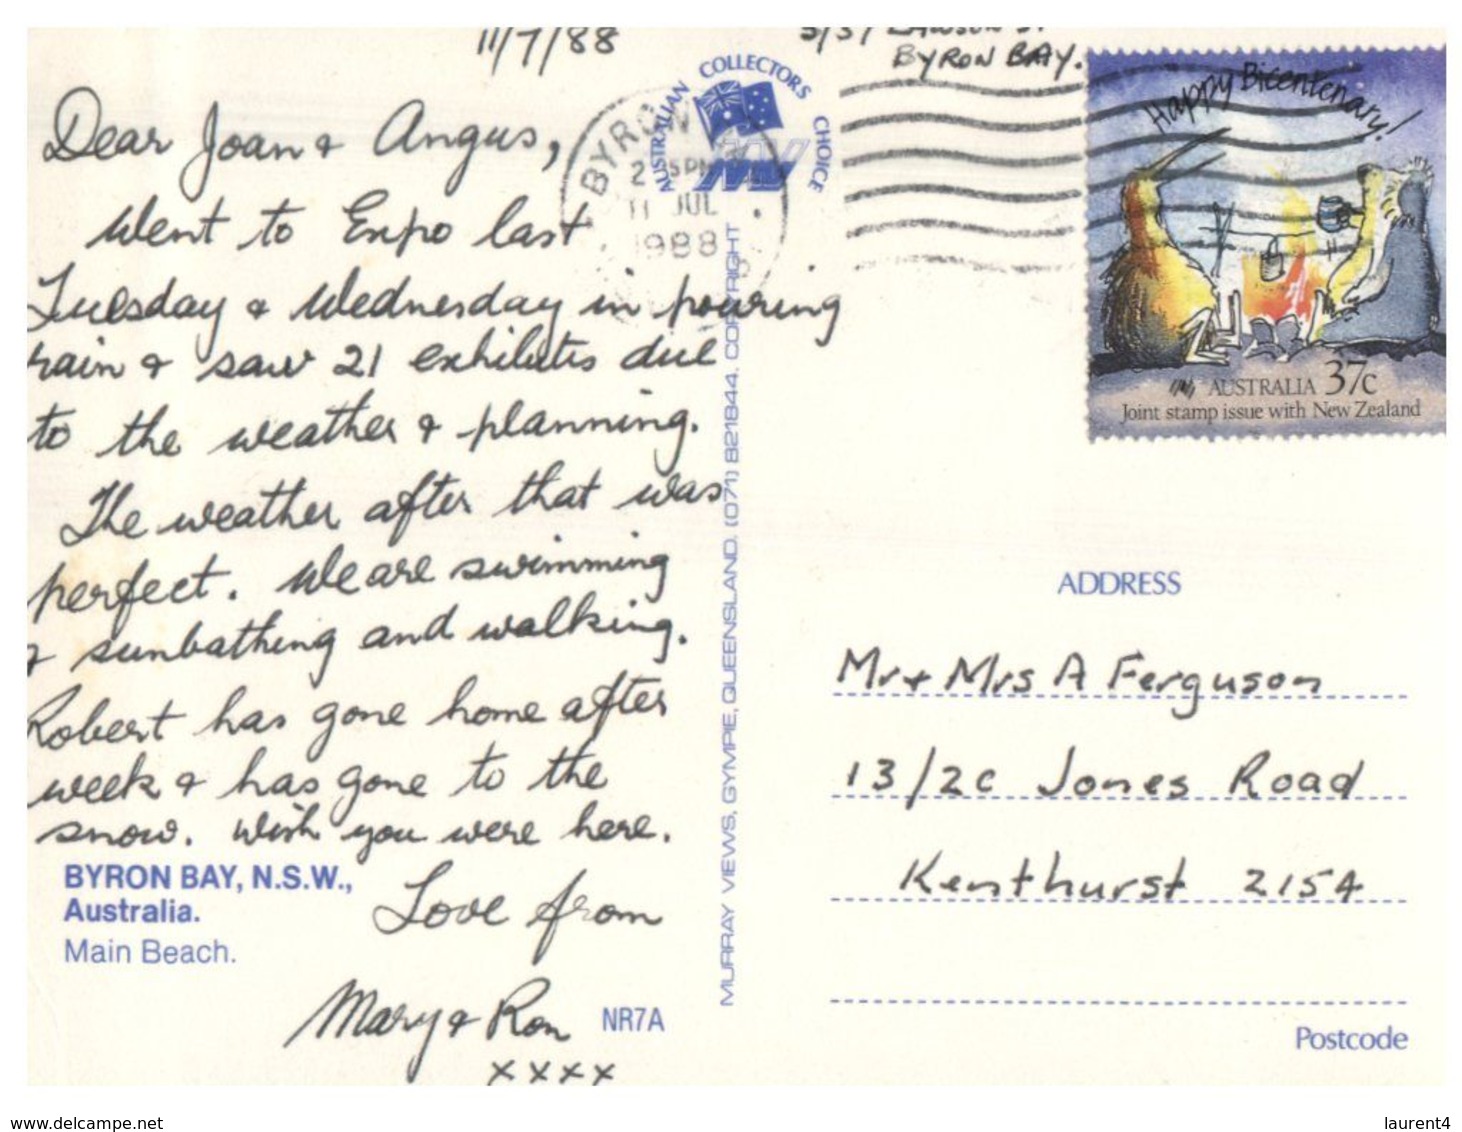 11/7/88
BYRON BAY.
Dear Joan & Angus,
Went to Expo last
Tuesday & Wednesday in pouring
rain & saw 21 exhibits due
to the weather & planning.
The weather after that was
perfect. We are swimming
& sunbathing and walking.
Robert has gone home after
week & has gone to the
snow. Wish you were here.
Love from
Mary & Ron
xxxx
BYRON BAY, N.S.W.,
Australia.
Main Beach.
NR7A
AUSTRALIAN COLLECTORS CHOICE
MV
BYRON
11 JUL
1988
MURRAY VIEWS, GYMPIE, QUEENSLAND. (071) 821844. COPYRIGHT
Happy Bicentenary!
AUSTRALIA 37c
Joint stamp issue with New Zealand
ADDRESS
Mr & Mrs A Ferguson
13/2C Jones Road
Kenthurst 2154
Postcode
www.delcampe.net
laurent4